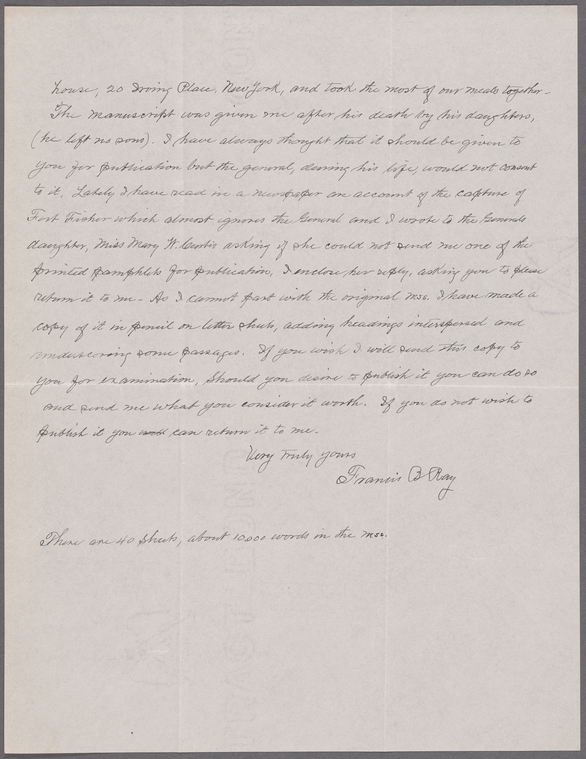 house, 20 Irving Place, New York, and took the most of our meals together.
The manuscript was given me after his death by his daughters,
(he left no sons). I have always thought that it should be given to
you for publication but the general, during his life, would not consent
to it. Lately I have read in a newspaper an account of the capture of
Fort Fisher which almost ignores the General and I wrote to the Generals
daughter, Miss Mary W. Curtis asking if she could not send me one of the
printed pamphlets for publication. I enclose her reply, asking you to please
return it to me. As I cannot part with the original mss. I have made a
copy of it in pencil on letter sheets, adding headings interspersed and
underscoring some passages. If you wish I will send this copy to
you for examination, Should you desire to publish it you can do so
and send me what you consider it worth. If you do not wish to
publish it you can return it to me.
Very Truly Yours
Francis B Ray
There are 40 sheets, about 10,000 words in the mss.